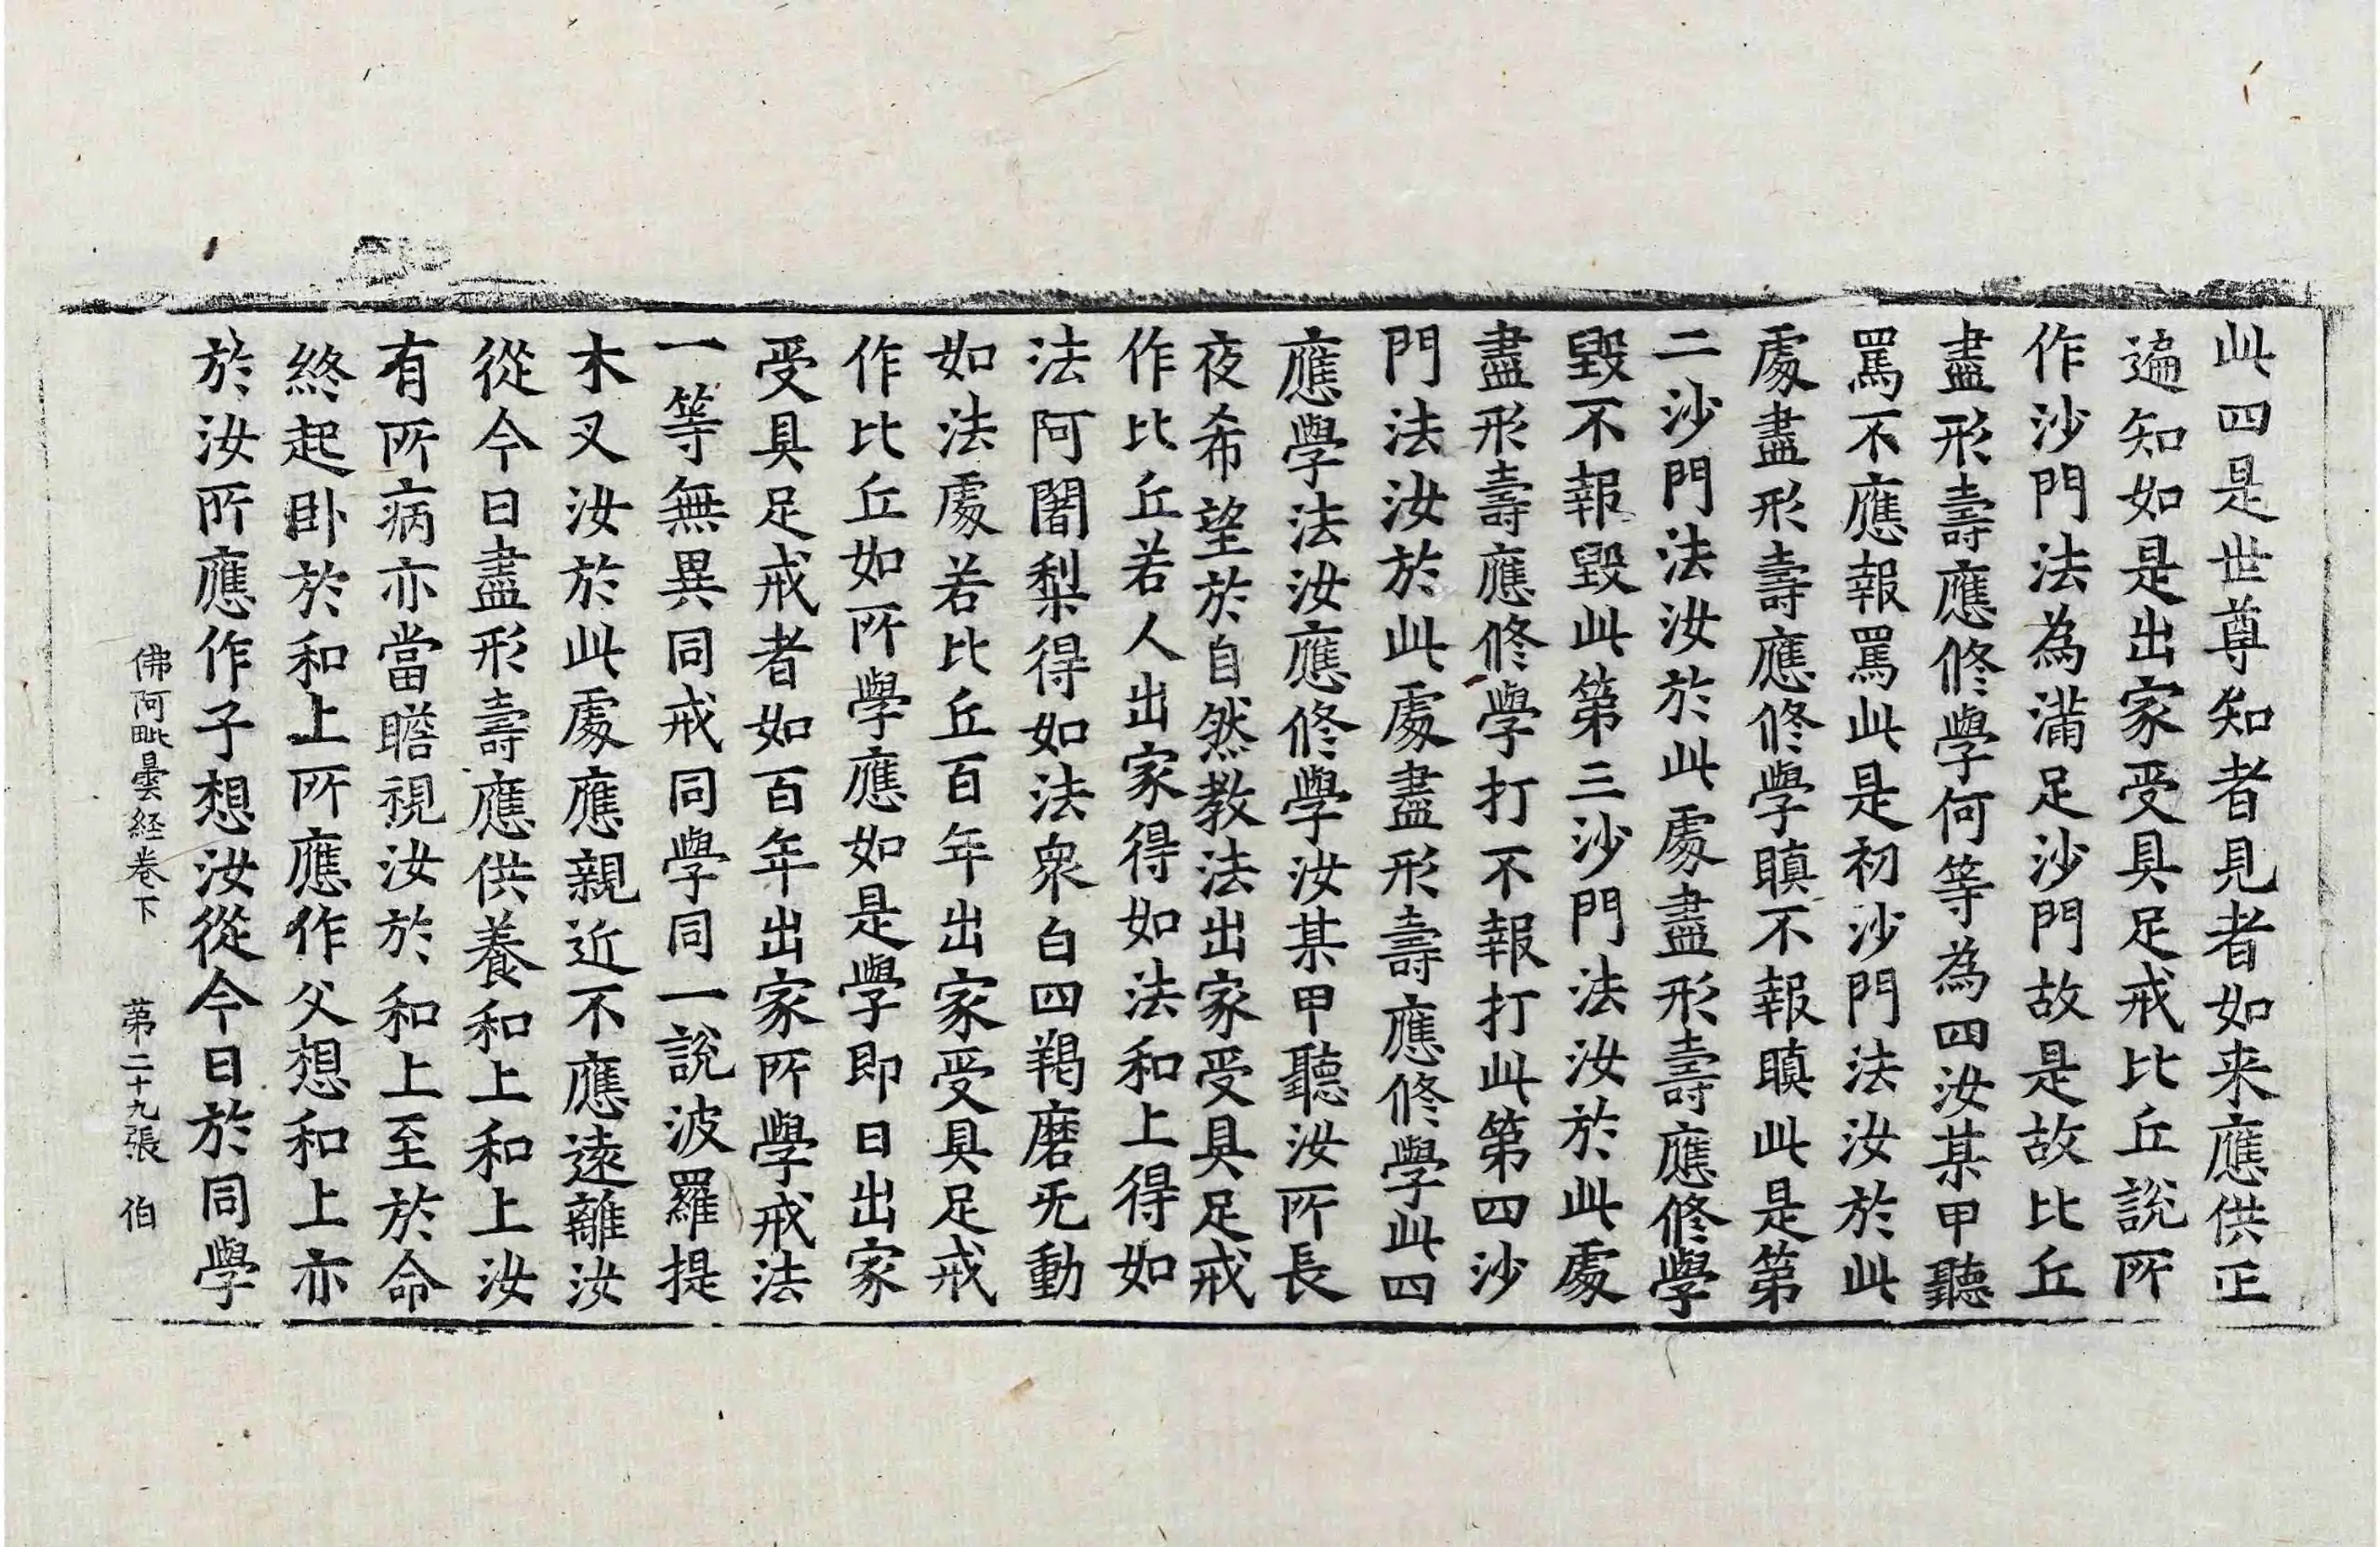 此四是世尊知者見者如来應供正
遍知如是出家受具足戒比丘說所
作沙門法為滿足沙門故是故比丘
盡形壽應修學何等為四汝某甲聽
罵不應報罵此是初沙門法汝於此
處盡形壽應修學瞋不報瞋此是第
二沙門法汝於此處盡形壽應修學
毀不報毀此第三沙門法汝於此處
盡形壽應修學打不報打此第四沙
門法汝於此處盡形壽應修學此四
應學法汝應修學汝某甲聽汝所長
夜希望於自然教法出家受具足戒
作比丘若人出家得如法和上得如
法阿闍梨得如法衆白四羯磨无動
如法處若比丘百年出家受具足戒
作比丘如所學應如是學即日出家
受具足戒者如百年出家所學戒法
一等無異同戒同學同一說波羅提
木叉汝於此處應親近不應遠離汝
從今日盡形壽應供養和上和上汝
有所病亦當瞻視汝於和上至於命
終起卧於和上所應作父想和上亦
於汝所應作子想汝從今日於同學
佛阿毗曇経卷下 苐二十九張 伯